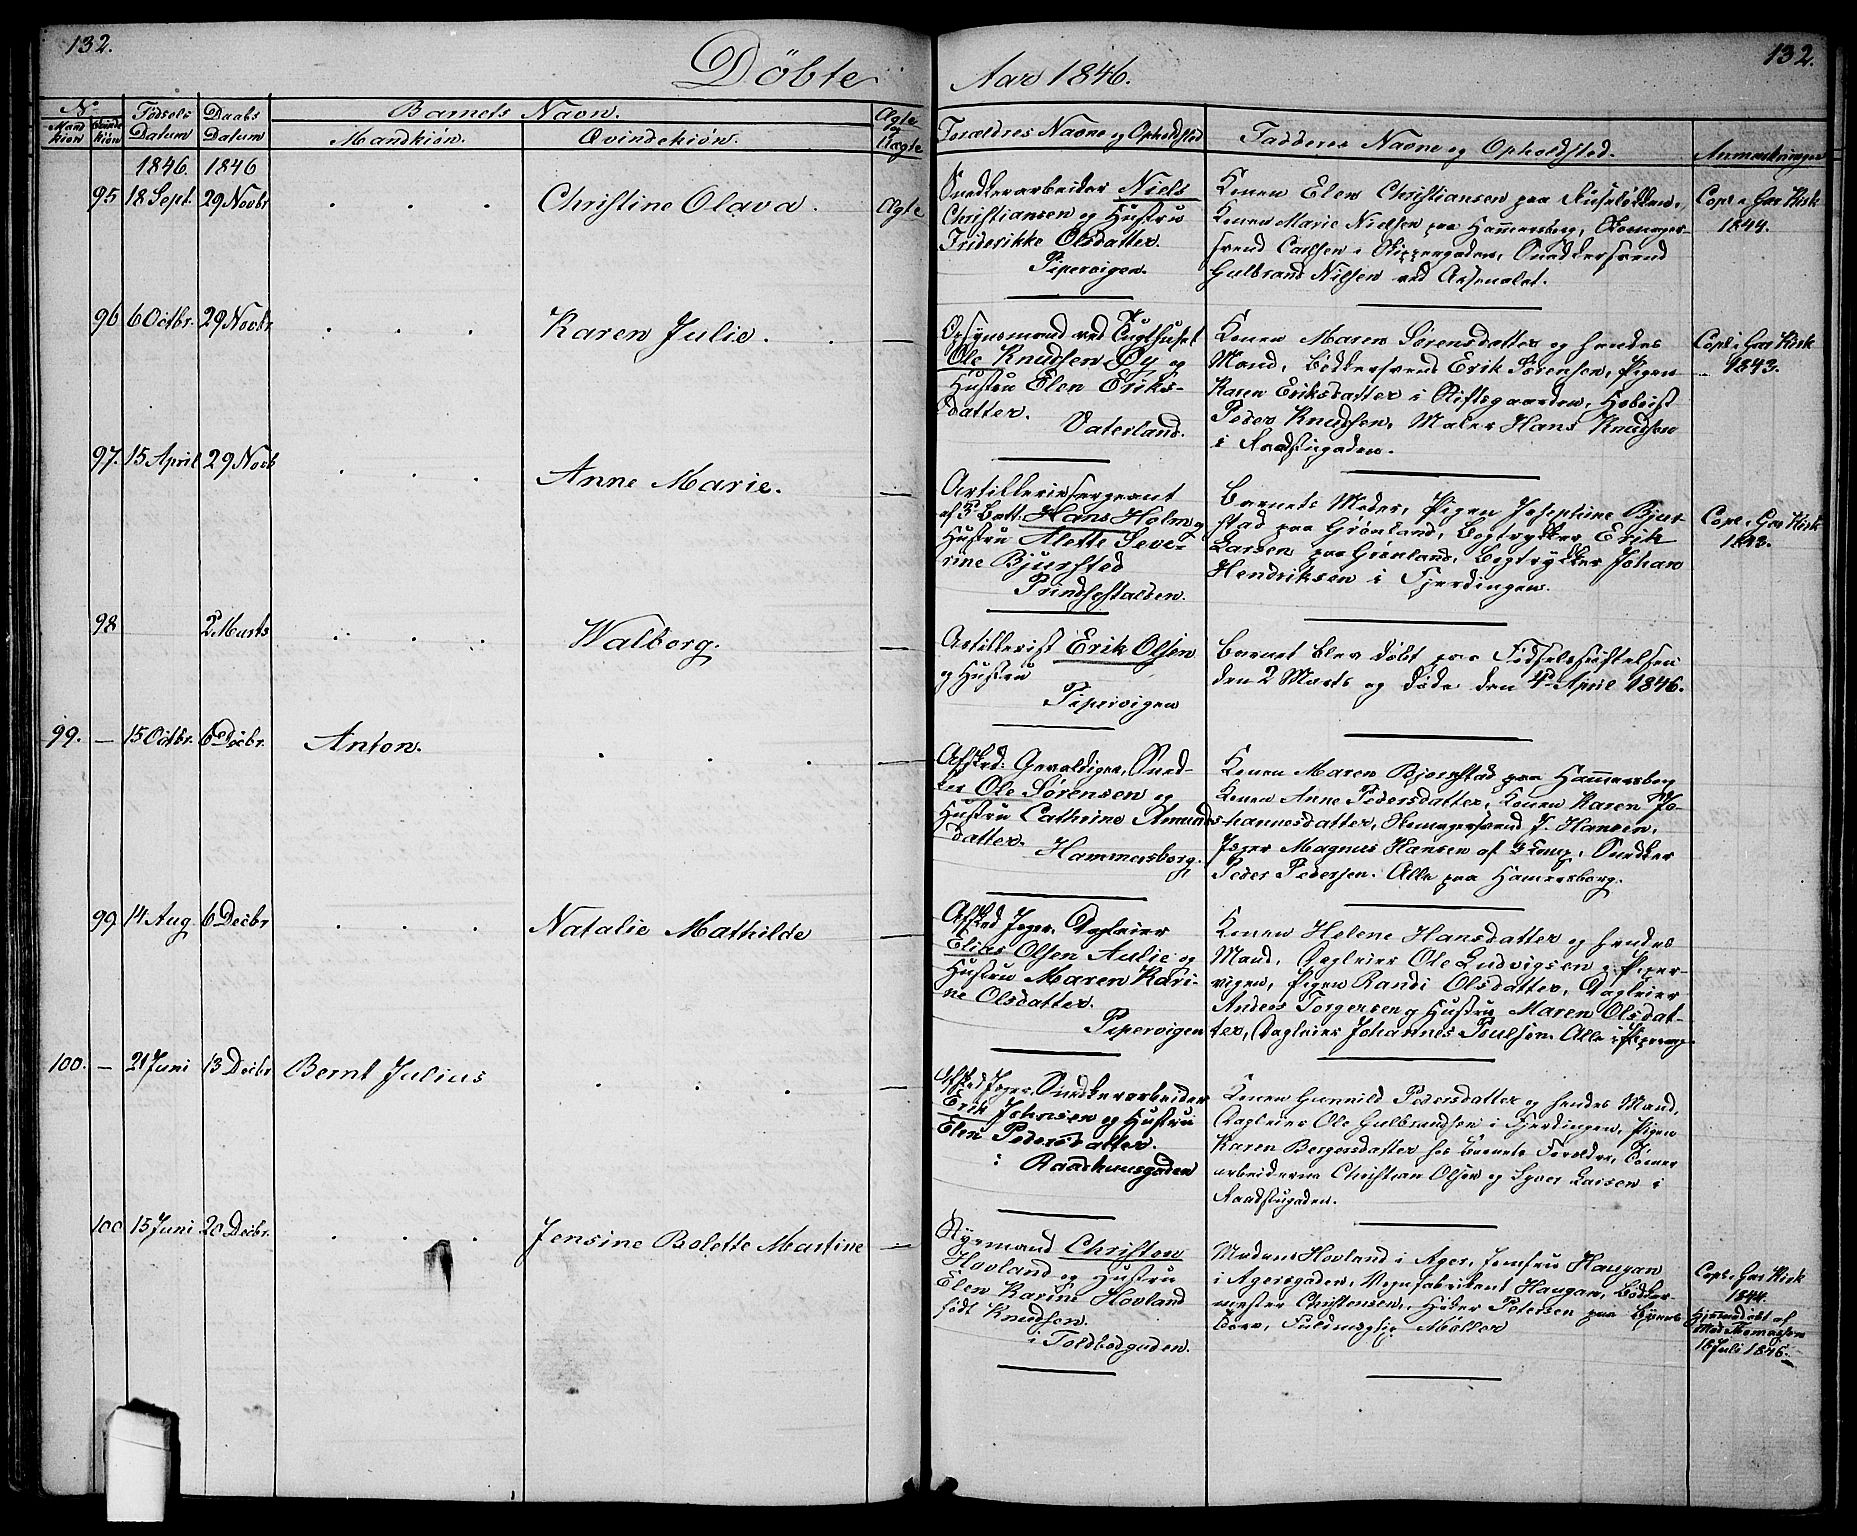 132.
132.
Döbte
Aar 1846.
No
Mandkiön
Qvindekiön
Födsels Datum
Daabs Datum
Barnets Navn.
Mandkiön.
Qvindekiön.
Ægte og Uægte
Forældres Navne og Opholdsted
Faddernes Navne og Opholdsted.
Anmærkninger
1846. 1846
95 18 Sept. 29 Novbr
Christine Olava.
Ægte
Snedkerarbeider Niels
Christiansen og Hustru
Friderikke Olsdatter.
Pipervigen.
Konen Elen Christiansen paa Ruseløkken,
Konen Marie Nielsen paa Hammersborg, Skomager-
svend Carlsen i Skippergaden, Snedkersvend
Gulbrand Nilsen ved Arsenalet.
Copl. i Gar Kirk
1844.
96 6 Octbr. 29 Novbr
Karen Julie.
Opsynsmand ved Tugthuset
Ole Knudsen Øy og
Hustru Elen Eriks-
datter.
Vaterland.
Konen Maren Sørensdatter og hendes
Mand, Bödkersvend Erik Sørensen, Pigen
Karen Eriksdatter i Stiftsgaarden, Hoboist
Peder Knudsen, Maler Hans Knudsen
i Raadstugaden.
Copl. i Gar Kirk
1843.
97. 15 April 29 Novb
Anne Marie.
Artillerisergeant
af 3d Batt. Hans Holm og
Hustru Alette Seve-
rine Bjursted
Prindsestalden.
Barnets Moder, Pigen Josephine Bjur-
stad paa Grønland, Bogtrykker Erik
Larsen paa Grønland, Bogtrykker Johan
Hendriksen i Fjerdingen.
Copl. i Gar Kirk
1843.
98 2d Marts
Walborg.
Artillerist Erik Olsen
og Hustru
Pipervigen
Barnet blev döbt paa Födselsstiftelsen
den 2 Marts og döde den 4de April 1846.
99. 15 Octbr. 6 Decbr.
Anton.
Afsked: Gevaldiger, Sned-
ker Ole Sørensen og
Hustru Cathrine Amunds-
datter.
Hammersborg.
Konen Maren Bjørnstad paa Hammersborg
Konen Anne Pedersdatter, Konen Karen Jo-
hannesdatter, Skomagersvend J. Hansen,
Jæger Magnus Hansen af 3 Komp, Snedker
Peder Pedersen. Alle paa Hamersborg.
99 14 Aug. 6 Decbr
Natalie Mathilde
Afsked Jæger, Dagleier
Elias Olsen Aulie og
Hustru Maren Kari-
ne Olsdatter.
Pipervigen
Konen Helene Hansdatter og hendes
Mand, Dagleier Ole Ludvigsen i Piper-
vigen, Pigen Randi Olsdatter, Dagleier
Anders Torgersen og Hustru Maren Olsdat-
ter, Dagleier Johannes Poulsen. Alle i Piperv.
100. 21 Juni 13 Decbr
Bernt Julius
Afsked Jæger, Snedkerarbeider
Erik Johnsen og Hustru
Elen Pedersdatter.
i Raadhuusgaden
Konen Gunnild Pedersdatter og hendes Mand,
Dagleier Ole Gulbrandsen i Fjerdingen, Pigen
Karen Bergersdatter hos Barnets Forældre, Tömer-
arbeiderne Christian Olsen og Syver Larsen i
Raadstugaden.
100 15 Juni 20 Decbr.
Jensine Bolette Martine
Styrmand Christen
Hovland og Hustru
Elen Karine Hovland
født Knudsen.
i Toldbodgaden.
Madam Hovland i Ager, Jomfru Haugan
i Agersgaden, Vognfabrikant Haugan, Bödker-
mester Christensen, Huker Petersen paa
Møller
Copl. i Gar Kirk
1844.
Hjemmedöbt af
Mad Thomassen
18 Juli 1846.